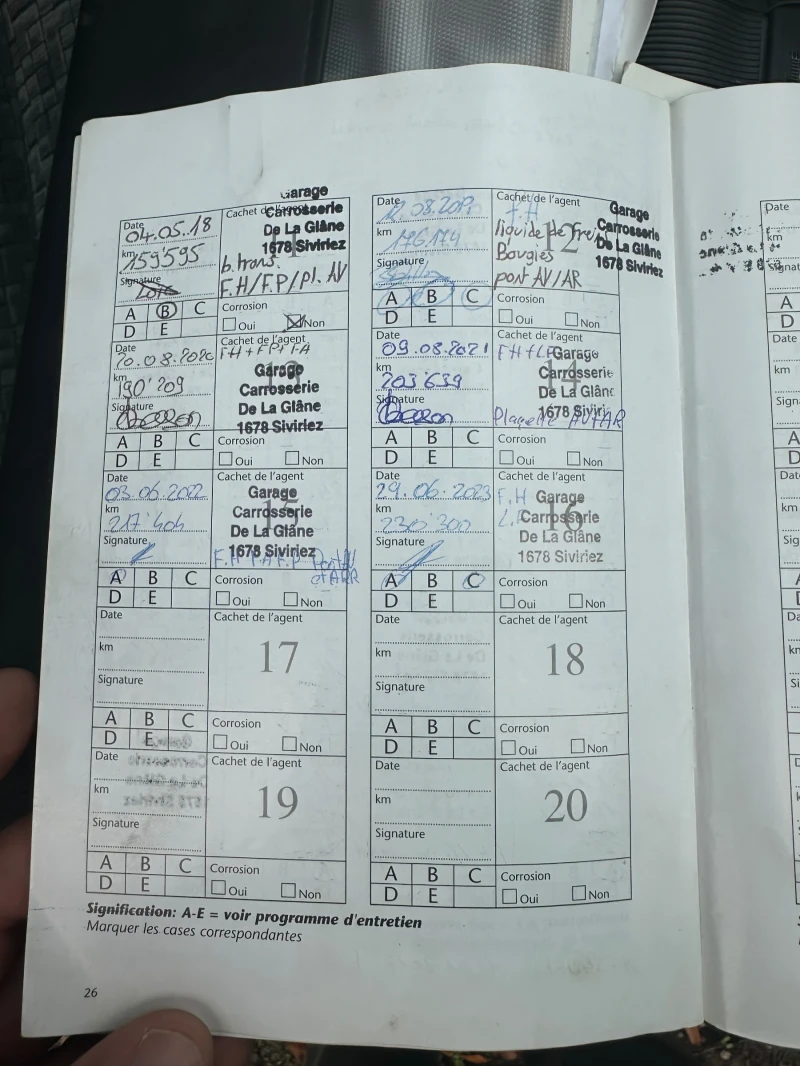 Date
04.05.18
km
159595
Signature
Cachet de l'agent
Garage
Carrosserie
De La Glâne
1678 Siviriez
b. trans
F.H/F.P/Pl. AV
A B C
D E
Corrosion
Oui Non
Date
km
176174
Signature
Cachet de l'agent
F.H
liquide de frein
Bougies
pont AV/AR
12
Garage
Carrosserie
De La Glâne
1678 Siviriez
A B C
D E
Corrosion
Oui Non
Date
20.08.2020
km
190'209
Signature
Cachet de l'agent
13
Garage
Carrosserie
De La Glâne
1678 Siviriez
A B C
D E
Corrosion
Oui Non
Date
09.08.2021
km
203'639
Signature
Cachet de l'agent
14
Garage
Carrosserie
De La Glâne
1678 Siviriez
Plaquette AV+AR
A B C
D E
Corrosion
Oui Non
Date
03.06.2022
km
217'404
Signature
Cachet de l'agent
15
Garage
Carrosserie
De La Glâne
1678 Siviriez
A B C
D E
Corrosion
Oui Non
Date
29.06.2023
km
230'300
Signature
Cachet de l'agent
F.H
16
Garage
Carrosserie
De La Glâne
1678 Siviriez
A B C
D E
Corrosion
Oui Non
Date
km
Signature
Cachet de l'agent
17
A B C
D E
Corrosion
Oui Non
Date
km
Signature
Cachet de l'agent
18
A B C
D E
Corrosion
Oui Non
Date
km
Signature
Cachet de l'agent
19
A B C
D E
Corrosion
Oui Non
Date
km
Signature
Cachet de l'agent
20
A B C
D E
Corrosion
Oui Non
Signification: A-E = voir programme d'entretien
Marquer les cases correspondantes
26